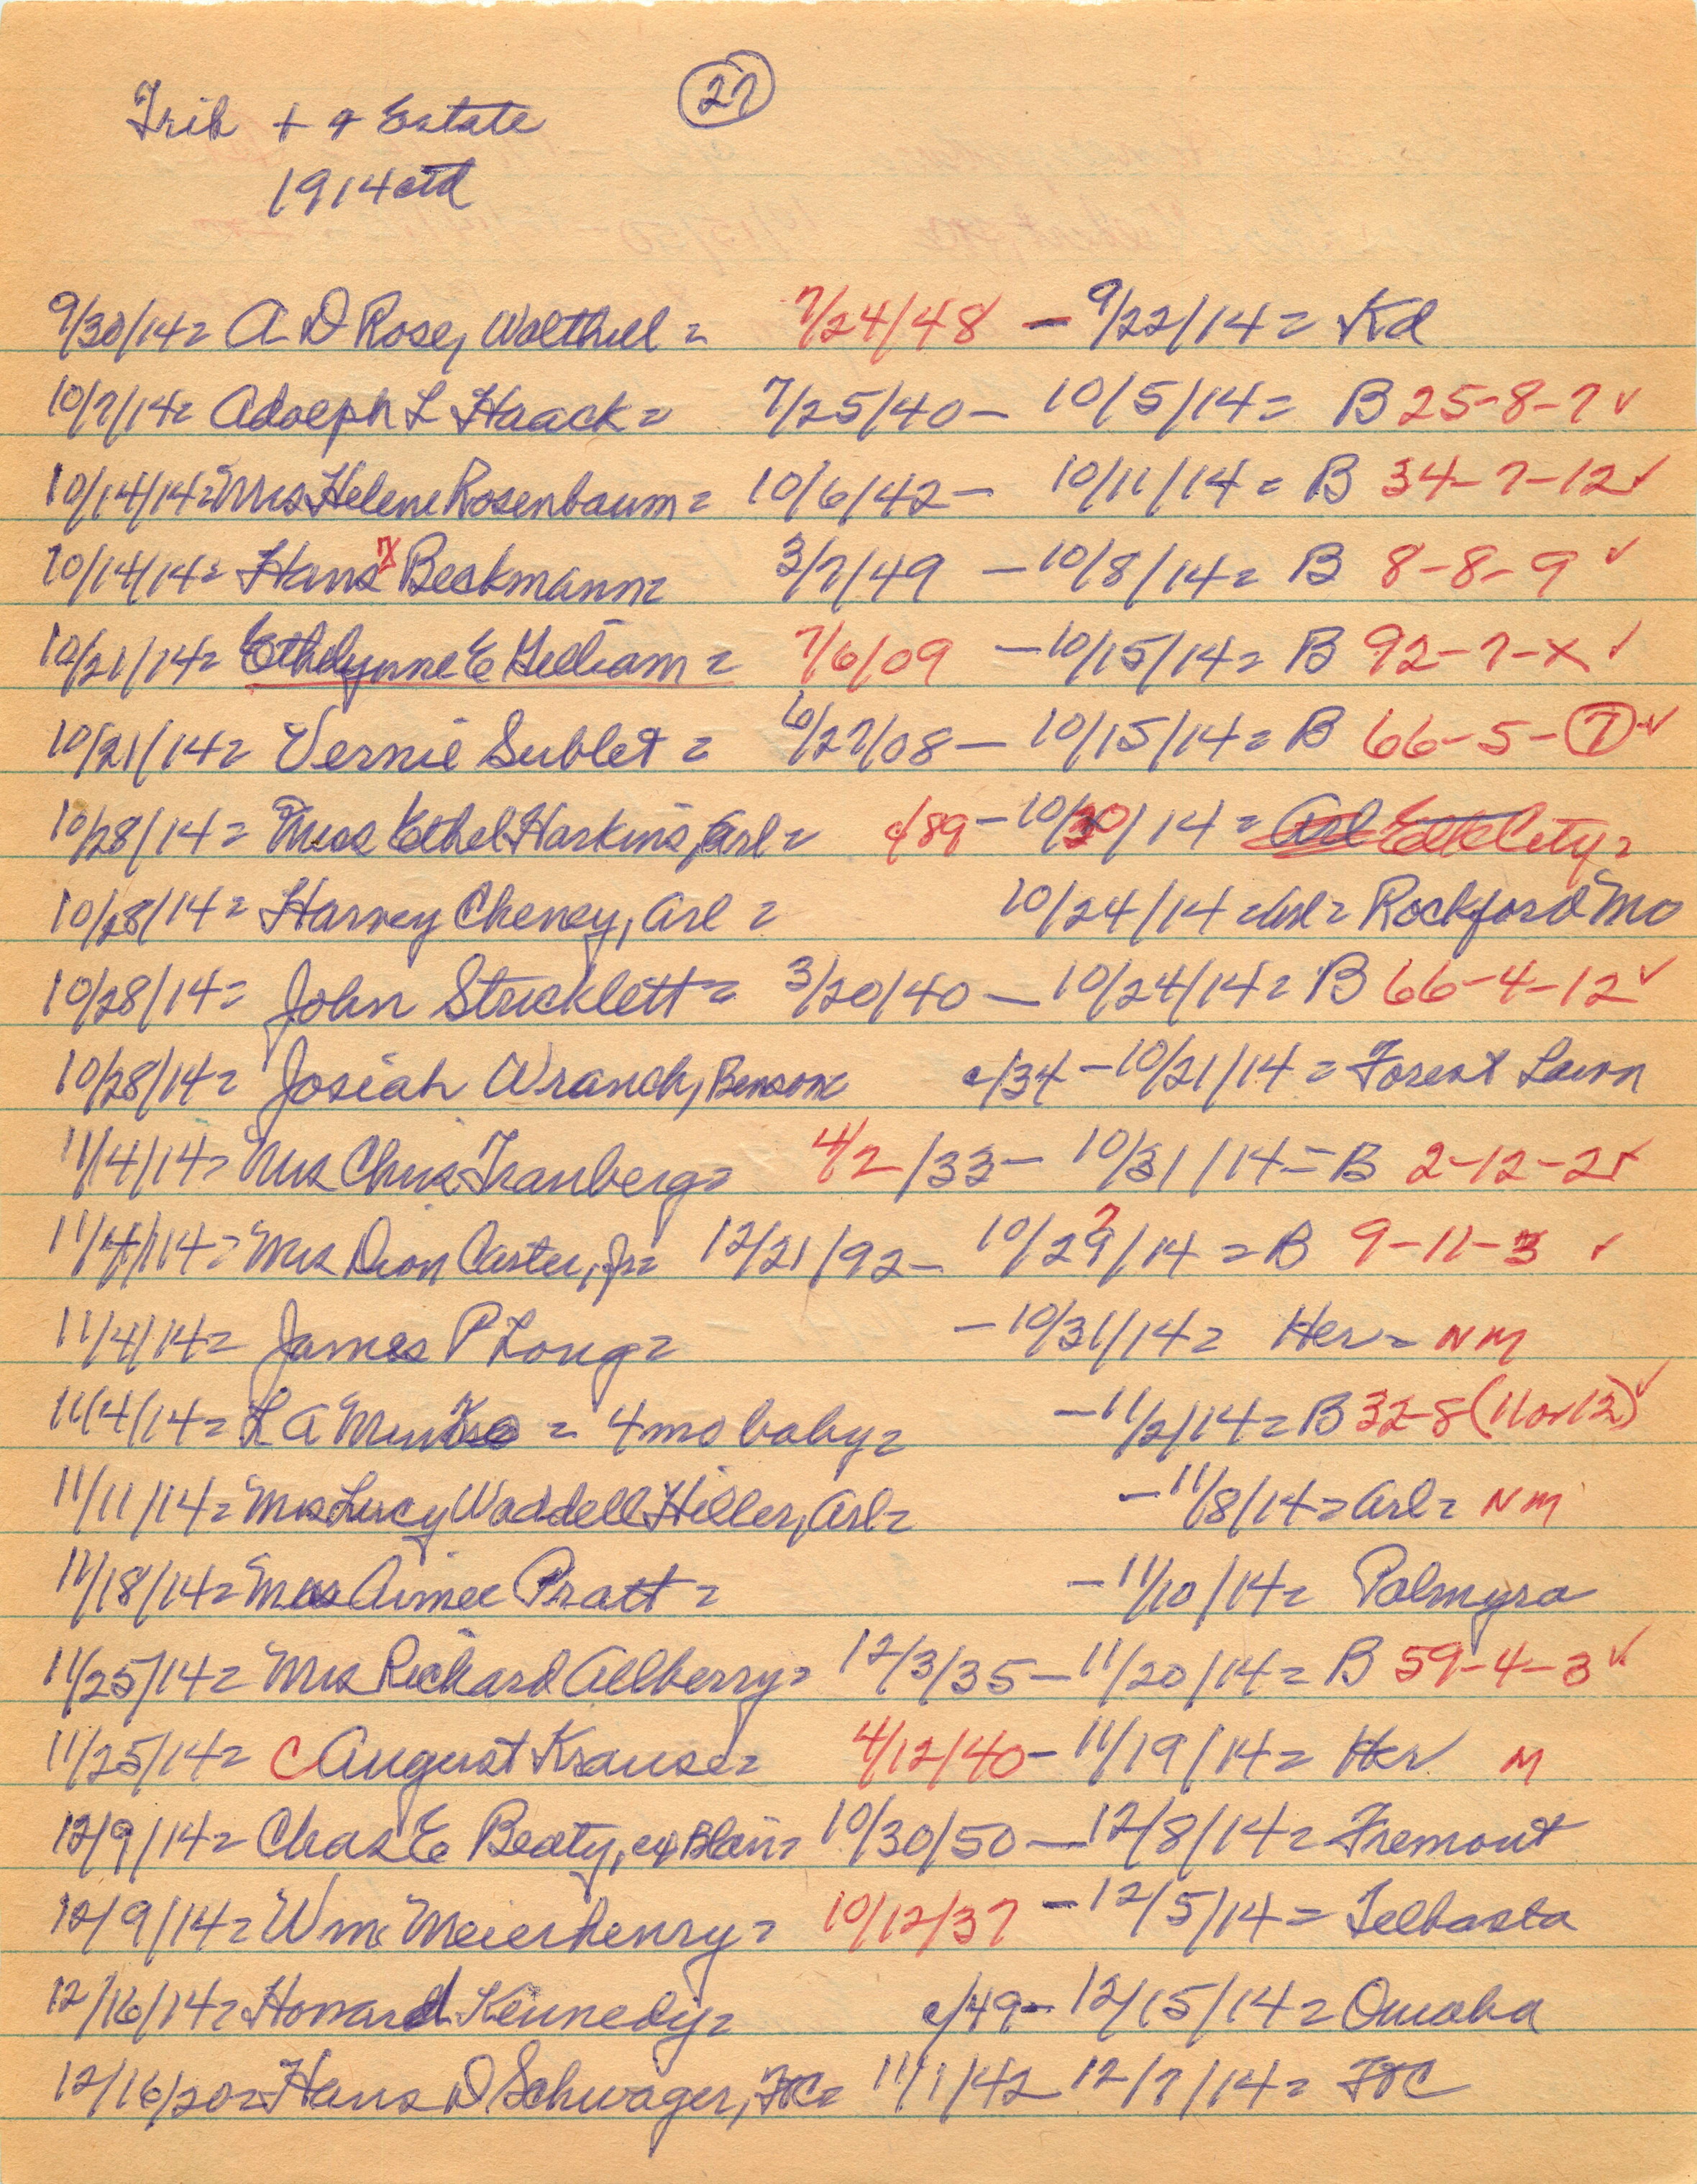 27
Trib + + Estate
1914 ctd
9/30/14= A D Rose, Walthill = 7/24/48 - 9/22/14= Kd
10/7/14= Adolph L Haack= 7/25/40- 10/5/14= B 25-8-7 ✓
10/14/14=Mrs Helene Rosenbaum= 10/6/42- 10/11/14= B 34-7-12✓
10/14/14= Hans Beckmann= 3/7/49 -10/8/14= B 8-8-9 ✓
10/21/14= Ethelynne E Gilliam= 7/6/09 -10/15/14= B 92-7-X ✓
10/21/14= Vernie Sublet= 6/27/08- 10/15/14= B 66-5-7 ✓
10/28/14= Miss Ethel Harkins, Arl= c/89-10/20/14= Arl Elk City=
10/28/14= Harvey Cheney, Arl= 10/24/14 =Arl= Rockford Mo
10/28/14= John Stricklett= 3/20/40- 10/24/14= B 66-4-12✓
10/28/14= Josiah Wranch, Benson= c/34 -10/21/14= Forest Lawn
11/4/14= Mrs Chris Tranberg= 4/2/33- 10/31/14= B 2-12-2✓
11/4/14= Mrs Dion Carter, Jr= 12/21/92- 10/29/14 = B 9-11-3 ✓
11/4/14= James P Long= -10/31/14= Her= NM
11/4/14= L A = 4mo baby= -11/2/14= B 32-8(11or12)✓
11/11/14= Mrs Lucy Waddell Hiller, Arl= -11/8/14=Arl= NM
11/18/14= Mrs Aimee Pratt= -11/10/14= Palmyra
11/25/14= Mrs Richard Allberry= 12/3/35-11/20/14= B 59-4-3✓
11/25/14= C August Krause= 4/12/40- 11/19/14= Her M
12/9/14= Chas E Beaty, ex Blair= 10/30/50-12/8/14= Fremont
12/9/14= Wm Meierhenry= 10/12/37 -12/5/14= Telbasta
12/16/14= Howard Kennedy= c/49- 12/15/14= Omaha
12/16/20= Hans D Schwager, FtC= 11/1/42 12/7/14= FtC